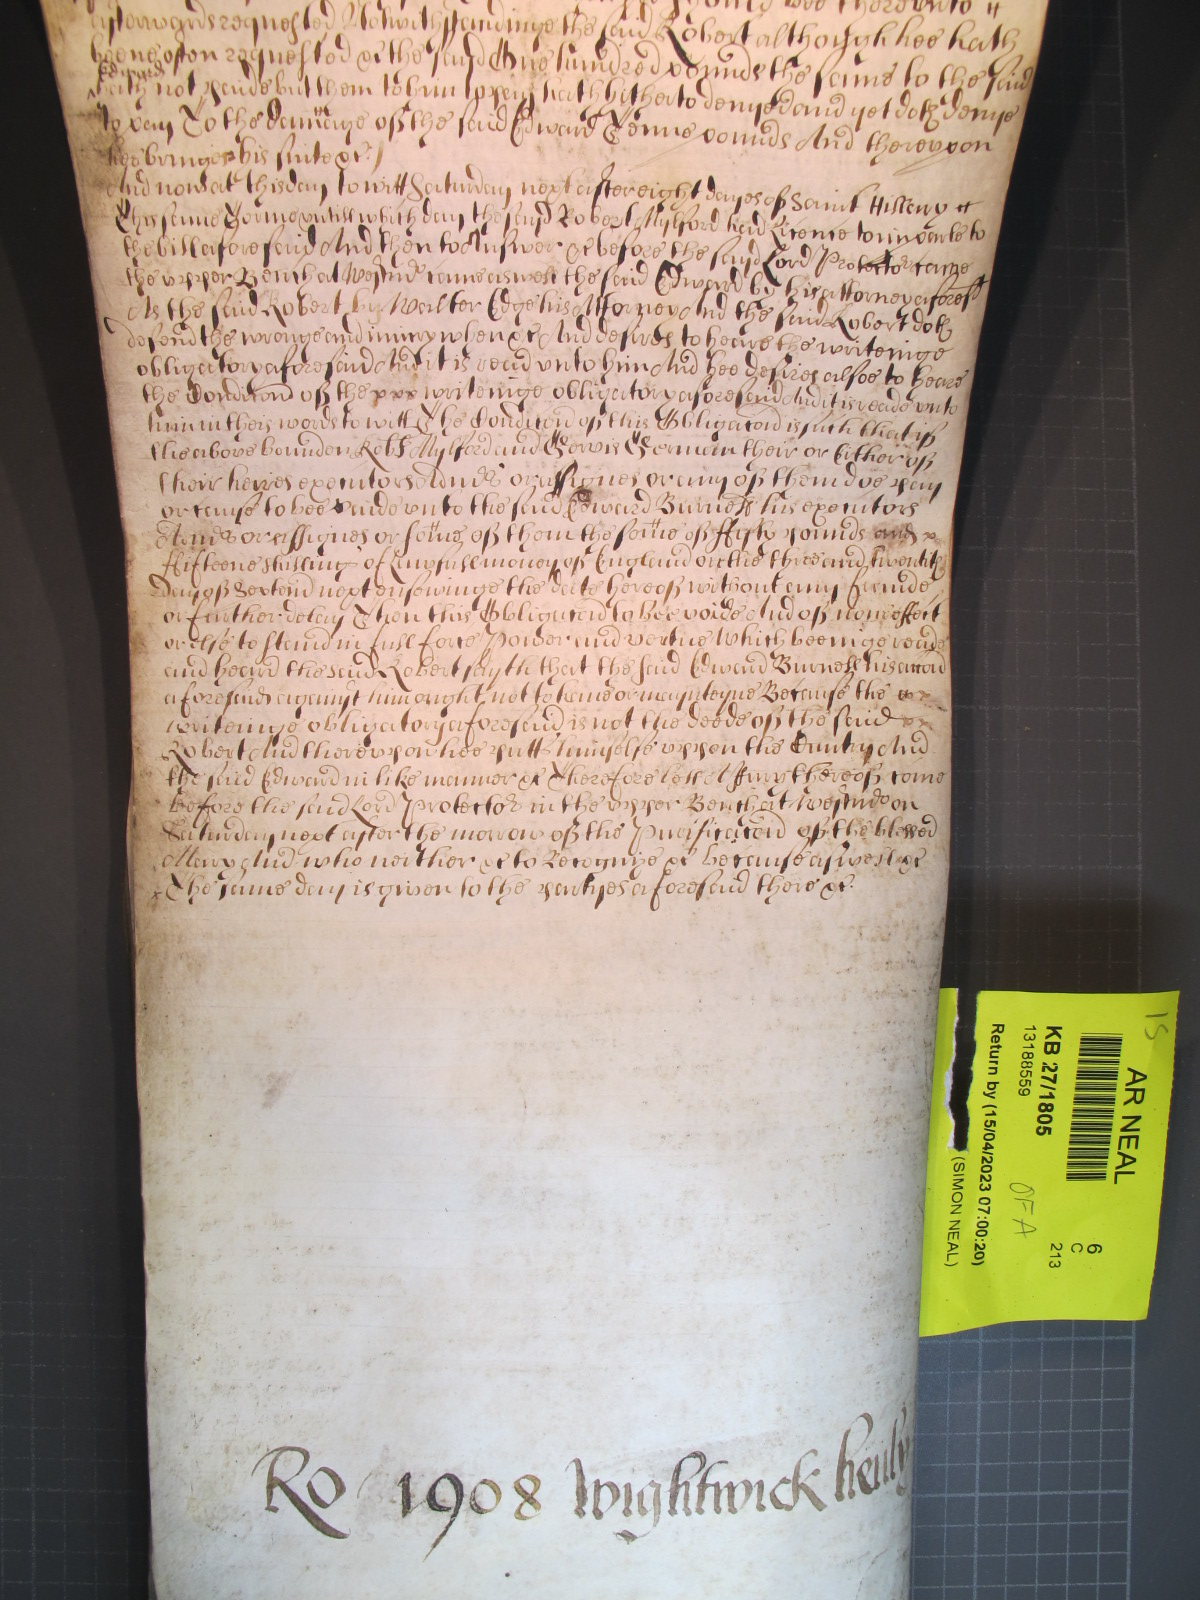 should bee thereunto
afterwards requested Notwithstandinge the said Robert although hee hath
beene often requested &c the sayd One hundred pounds the same to the said
Edward
hath not paide but them to him to pay hath hitherto denyed and yet doth denye
to pay To the damage of the said Edward Tenne pounds And thereupon
hee bringes his suite &c
And now at this day to witt Saturday next after eight dayes of Saint Hillary
this same Terme untill which day the sayd Robert Mylford had licence to imparle to
the bill aforesaid And then to Answer &c before the sayd Lord Protector came
the upper Bench at Westmr came aswell the said Edward by his attorney aforesd
As the said Robert by Walter Edge his Attorney And the said Robert doth
defend the wronge and iniury when &c And desires to heare the writeinge
obligatory aforesaid And it is read unto him And hee desires alsoe to heare
the Condicion of the writeinge obligatory aforesaid And it is reade unto
him in theis words to witt The Condicion of this Obligacion is such that if
the above bounden Robt Mylford and Gervis German their or Either of
their heires executors Admrs or assignes or any of them doe pay
or cause to bee paide unto the said Edward Burnell his executors
Admrs or assignes or some of them the some of ffifty pounds and
ffifteene shillings of lawfull money of England on the three and twentith
day of Septem next ensewinge the date hereof without any fraude
or further delay Then this Obligacion to bee voide And of none effect
or else to stand in full force Power and vertue Which beeinge reade
and heard the said Robert sayth that the said Edward Burnell his accion
aforesaid against him ought not to have or maynteyne Because the
writeinge obligatory aforesaid is not the deede of the said
Robert And thereupon hee putts himselfe uppon the Cuntry And
the said Edward in like manner &c Therefore lett a Jury thereof come
before the said Lord Protector in the upper Bench at Westmr on
Saturday next after the morrow of the Purificacion of the blessed
Mary And who neither &c to Recognize &c because aswell &c
The same day is given to the partyes aforesaid there &c
Ro 1908 Wightwick henly
15
AR NEAL
KB 27/1805
13188559
Return by (15/04/2023 07:00:20)
(SIMON NEAL)
OFA
6
C
213